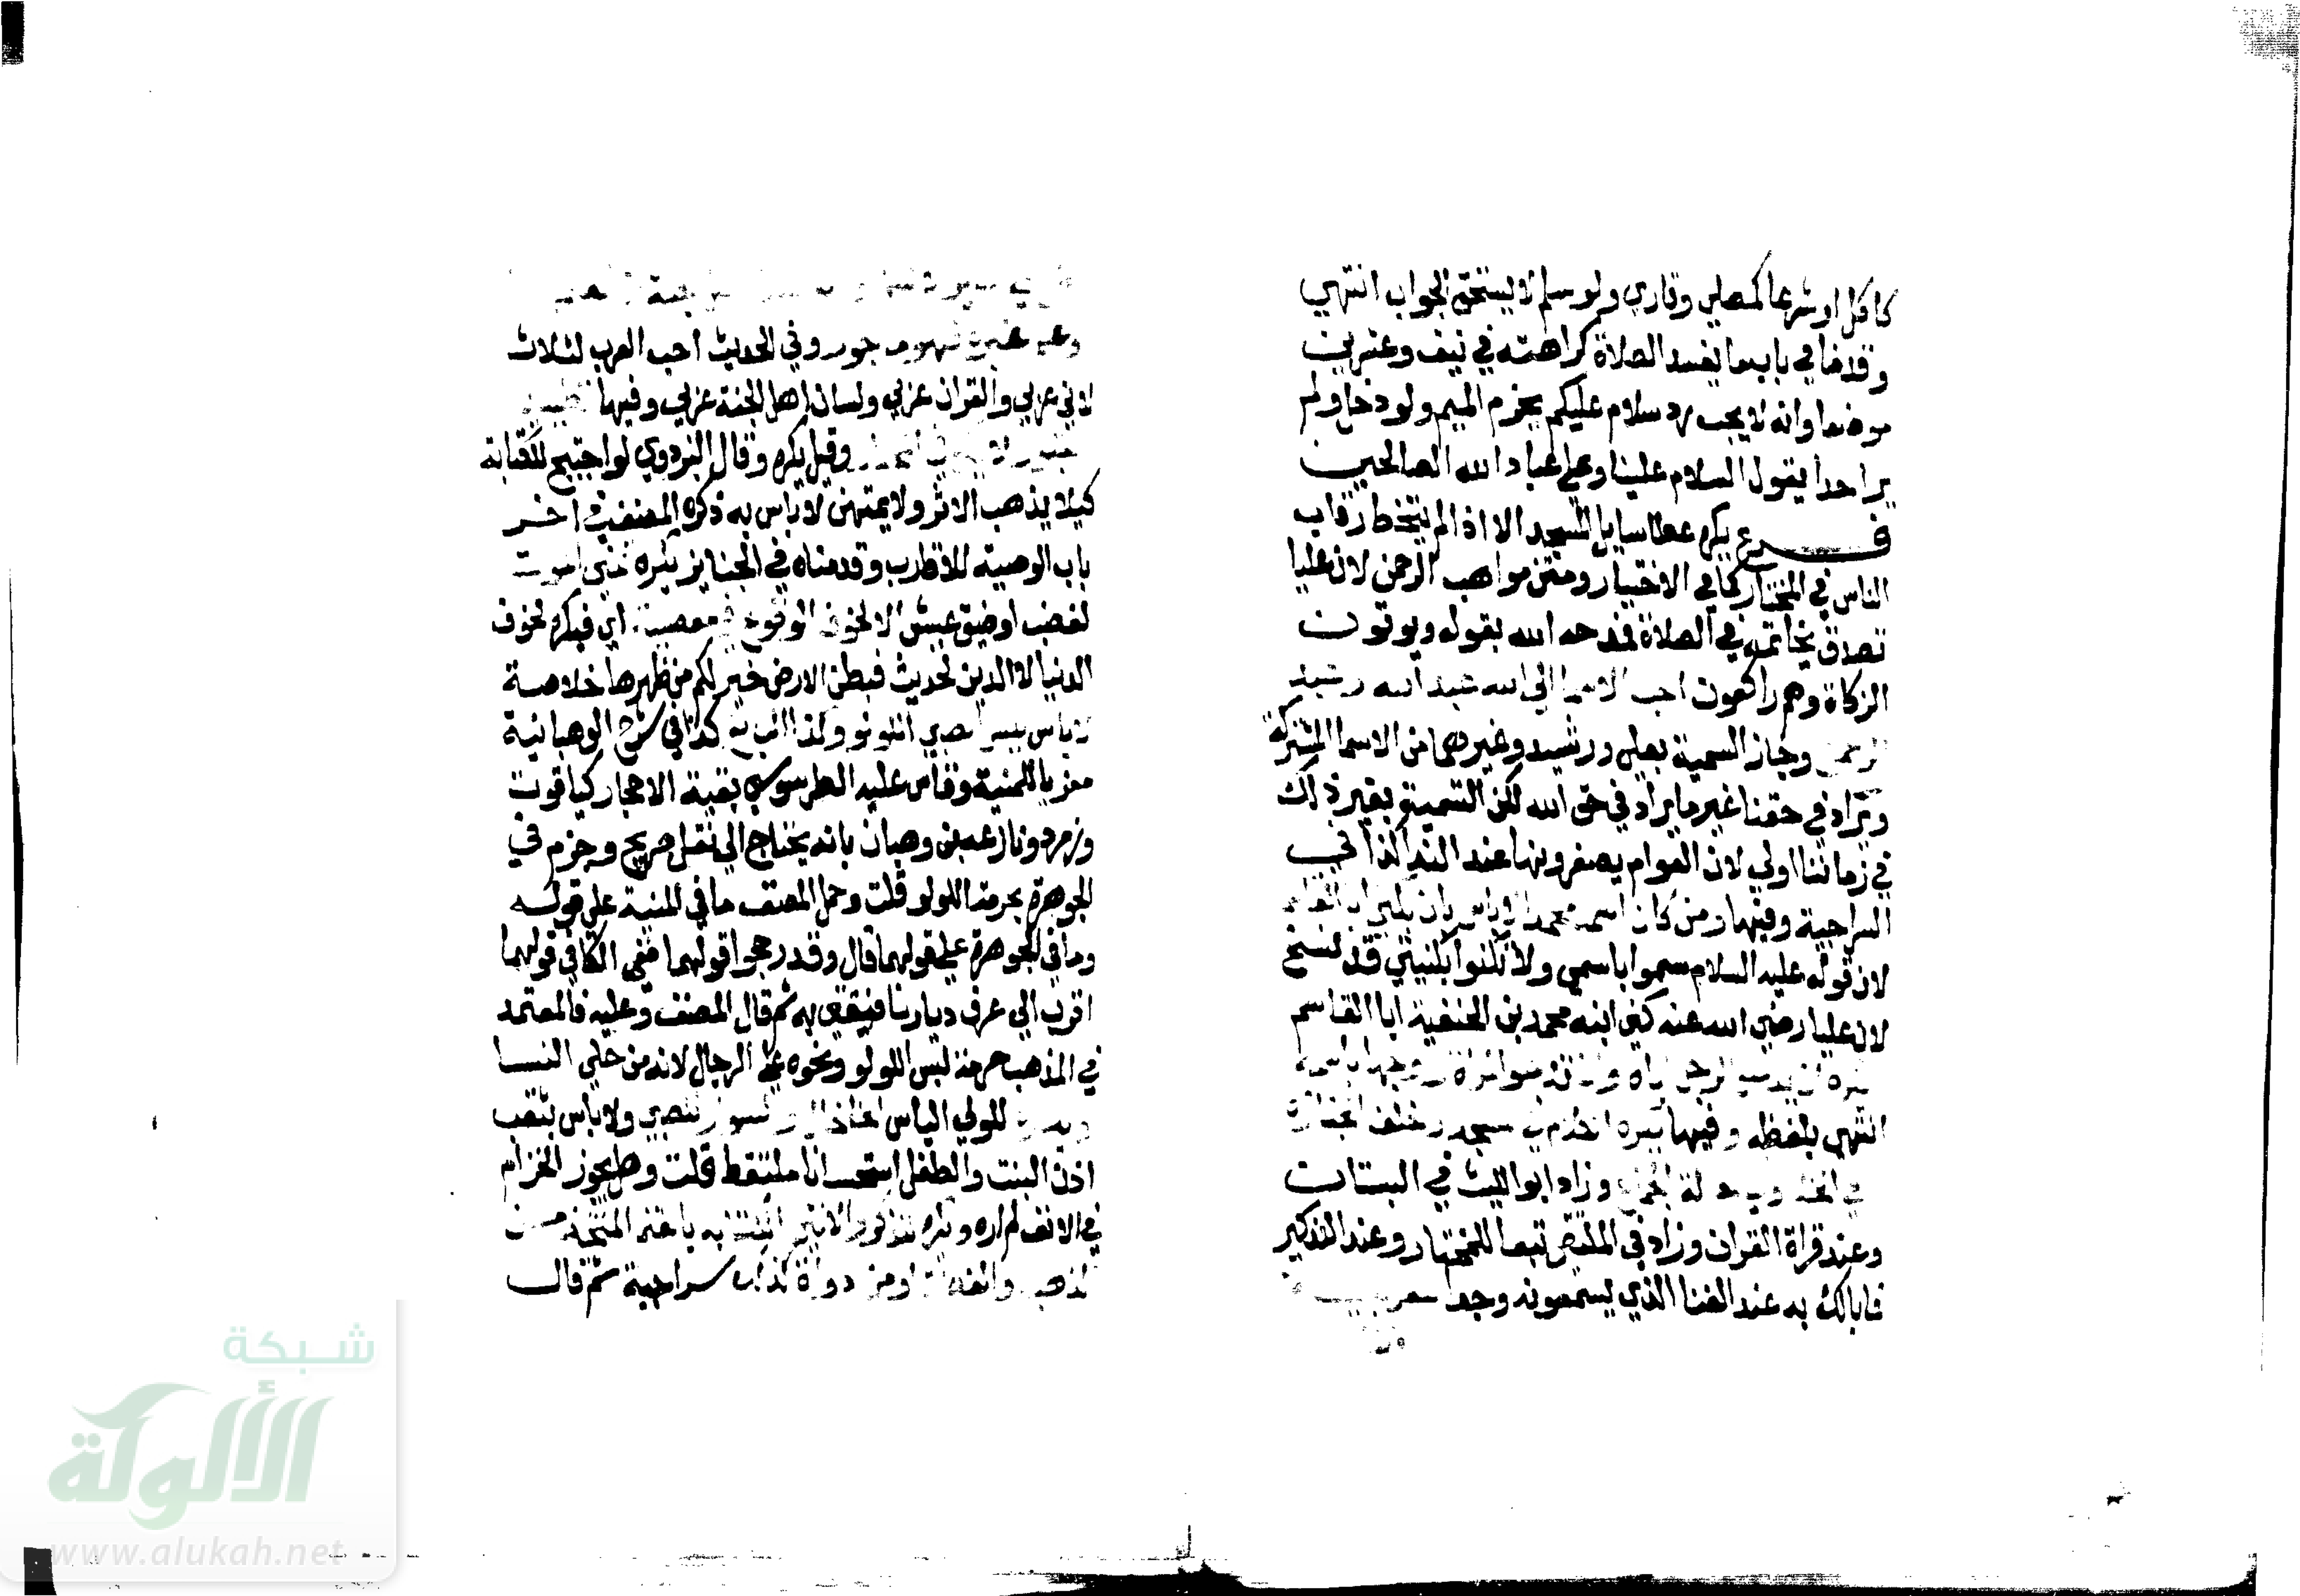 كاكل او شرعا كمصلي وقاري ولو سلم لا يستحق الجواب انتهي
وقدمنا في باب ما يفسد الصلاة كراهته في نيف وعشرين
موضعا وانه لا يجب رد سلام عليكم بجزم الميم ولو دخل ولم
ير احدا يقول السلام علينا وعلي عباد الله الصالحين
فرع يكره عطا سايل المسجد الا اذا لم يتخط رقاب
الناس في المختار كما في الاختيار ومتن مواهب الرحمن لان عليا
تصدق بخاتمه في الصلاة فمدحه الله بقوله ويوتون
الزكاة وهم راكعون احب الاسما الي الله عبد الله وعبد
الرحمن وجاز التسمية بعلي ورشيد وغيرهما من الاسما المشتركة
ويراد في حقنا غير ما يراد في حق الله لكن التسمية بغير ذلك
في زماننا اولي لان العوام يصغرونها عند الندا كذا في
السراجية وفيها ومن كان اسمه محمدا لا باس بان يكني ابا القاسم
لان قوله عليه السلام سموا باسمي ولا تكنوا بكنيتي قد نسخ
لان عليا رضي الله عنه كني ابنه محمد بن الحنفية ابا القاسم
يكره ان يدعو الرجل اباه وان تدعو المراة زوجها باسمه
انتهي بلفظه وفيها يكره الكلام في المسجد وخلف الجنازة
في الخلا وفي حالة الجماع وزاد ابو الليث في البستان
وعند قراة القران وزاد في الملتقي تبعا للمختار وعند التذكير
فما بالك به عند الغنا الذي يسمونه وجدا
وفي الحديث احب العرب لثلاث
لاني عربي والقران عربي ولسان اهل الجنة عربي وفيها
وقيل يكره وقال البزدوي لو احتيج للكتابة
كيلا يذهب الاثر ولا يمتهن لا باس به ذكره المصنف في اخر
باب الوصية للاقارب وقدمناه في الجنايز يكره تمني الموت
لغضب او ضيق عيش الا لخوف الوقوع في معصية اي فيكره لخوف
الدنيا لا الدين لحديث فبطن الارض خير لكم من ظهرها خلاصة
لا باس بلبس الصبي اللولو وكذا البالغ كذا في شرح الوهبانية
معزيا للمنية وقاس عليه الطرسوسي بقية الاحجار كياقوت
وزمرد ونازعه بن وهبان بانه يحتاج الي نقل صريح وجزم في
الجوهرة بحرمة اللولو قلت وحمل المصنف ما في المنية علي قوله
وما في الجوهرة علي قولهما قال وقد رجحوا قولهما ففي الكافي قولهما
اقرب الي عرف ديارنا فيفتي به ثم قال المصنف وعليه فالمعتمد
في المذهب حرمة لبس اللولو ونحوه علي الرجال لانه من حلي النسا
للولي الباس الخلخال والسوار للصبي ولا باس بثقب
اذن البنت والطفل استحسانا ملتقط قلت وهل يجوز الخزام
في الانف لم اره ويكره للذكور والانثي الكتابة بالقلم المتخذ من
الذهب والفضة او من دواة كذلك سراجية ثم قال